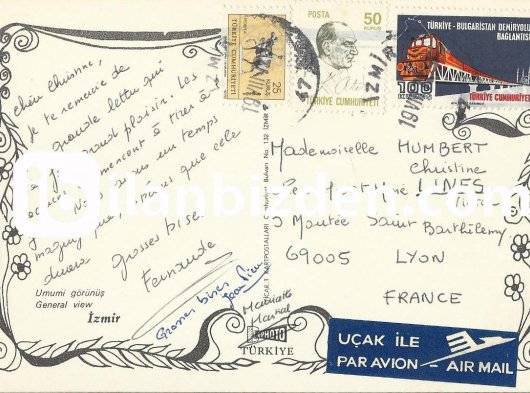 Chère Christine,
Je te remercie de
ta grande lettre qui
m'a fait grand plaisir. Les
vacances commencent à tirer à
Nous avons un temps
magnifique, que cela
durera
grosses bises
Fernande
Grosses bises
Umumi görünüş
General view
İzmir
POSTA
25
KURUŞ
TÜRKİYE
CUMHURİYETİ
POSTA
50
KURUŞ
TÜRKİYE CUMHURİYETİ
TÜRKİYE - BULGARİSTAN DEMİRYOLU
BAĞLANTISI
100
KURUŞ
TÜRKİYE CUMHURİYETİ
İZMİR
İZMİR
Mademoiselle HUMBERT
Christine
LINES
5 Montée Saint Barthélemy
69005 LYON
FRANCE
KARTPOSTALLARI
No. 132 İZMİR
FOTO
TÜRKİYE
UÇAK İLE
PAR AVION - AIR MAIL
ilanbizden.com